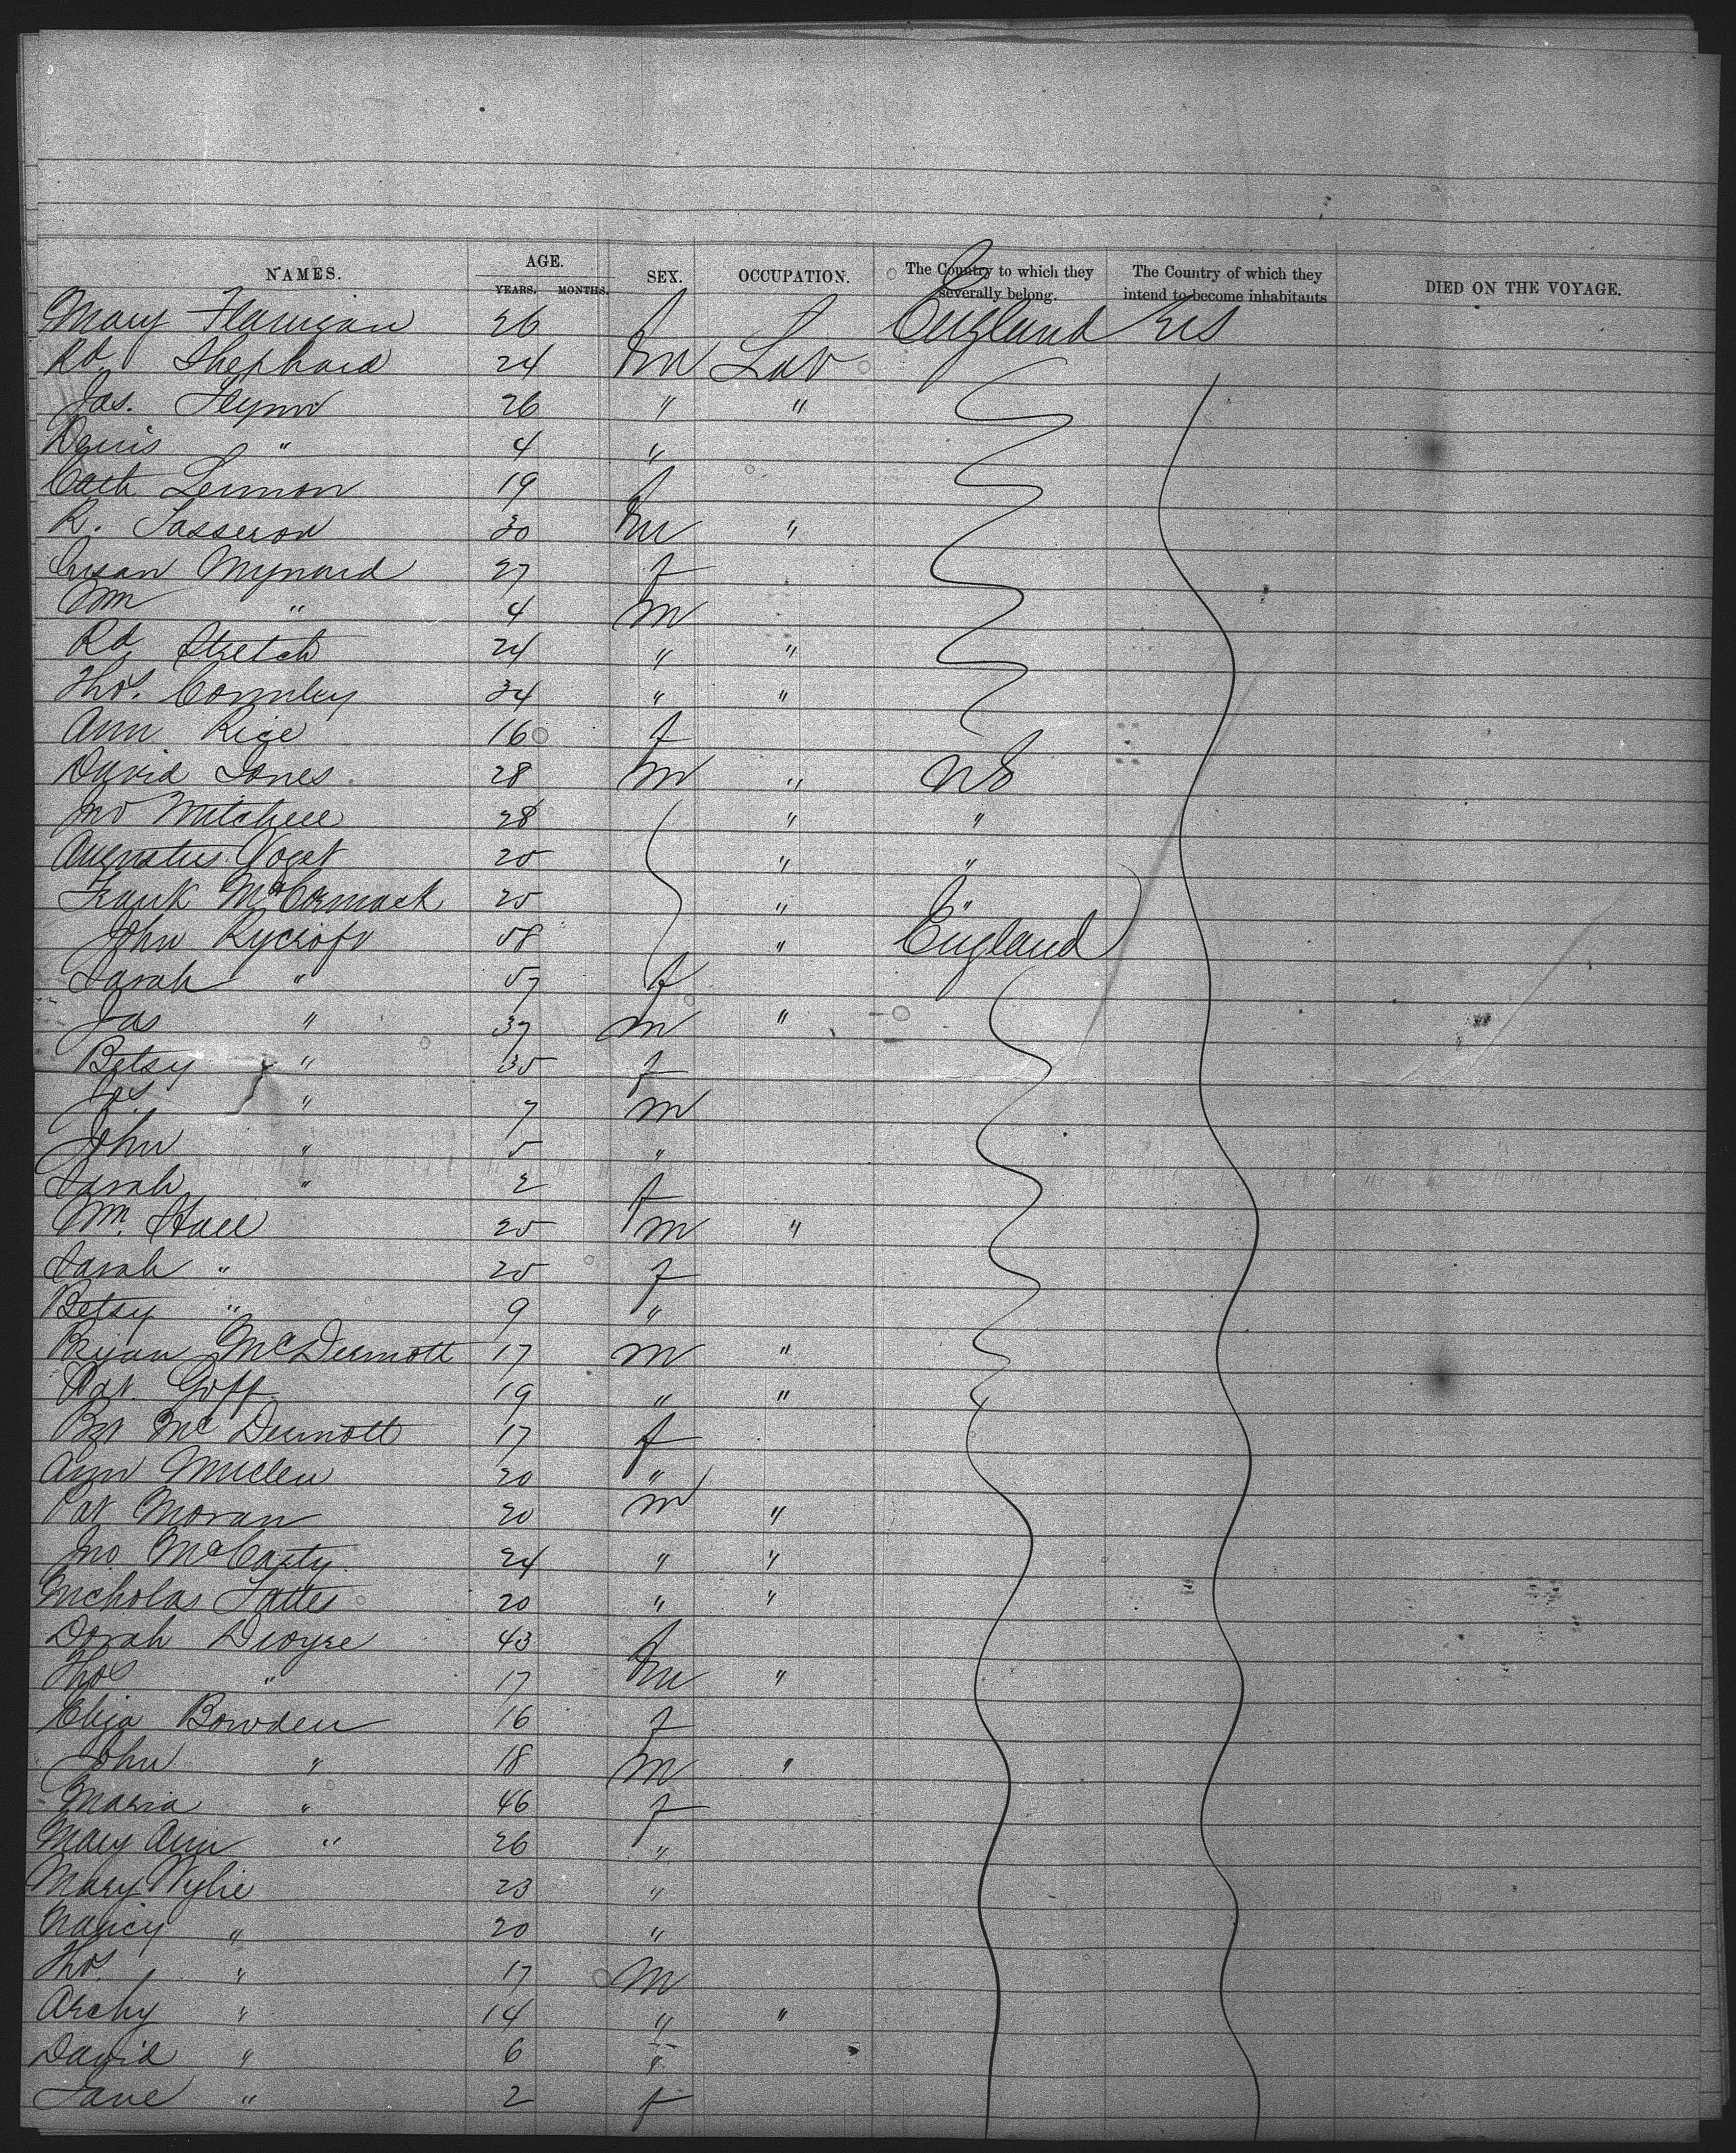 NAMES. AGE. SEX. OCCUPATION. The Country to which they severally belong. The Country of which they intend to become inhabitants DIED ON THE VOYAGE.
YEARS. MONTHS.
Mary Flanigan 26 f England US
Rd. Shephard 24 m Lab
Jas. Flynn 26 " "
Denis " 4 "
Cath Lennon 19 f
R. 30 m "
Susan Mynard 27 f
Wm " 4 m
Rd Stretch 24 " "
Thos. Connley 34 " "
Ann Rice 16 f
David Jones 28 m " US
Jno Mitchell 28 " "
Augustus Voget 25 " "
Frank McCormack 25 " "
John Rycroft 58 " England
Sarah " 57 f
Jas " 37 m "
Betsy " 35 f
Jas " 7 m
John " 5 "
Sarah " 2 f
Wm. Hall 25 m "
Sarah " 25 f
Betsy " 9 "
Bryan McDermott 17 m "
Pat. Goff 19 " "
Bgt McDermott 17 f
Ann 20 "
Pat Moran 20 m "
Jno McCarty. 24 " "
Nicholas 20 " "
Dorah Dwyre 43 f
Thos " 17 m "
Eliza Bowden 16 f
John " 18 m "
Maria " 46 f
Mary Ann " 26 "
Mary Wylie 23 "
Nancy " 20 "
Thos. " 17 m
Archy " 14 " "
David " 6 "
Jane " 2 f